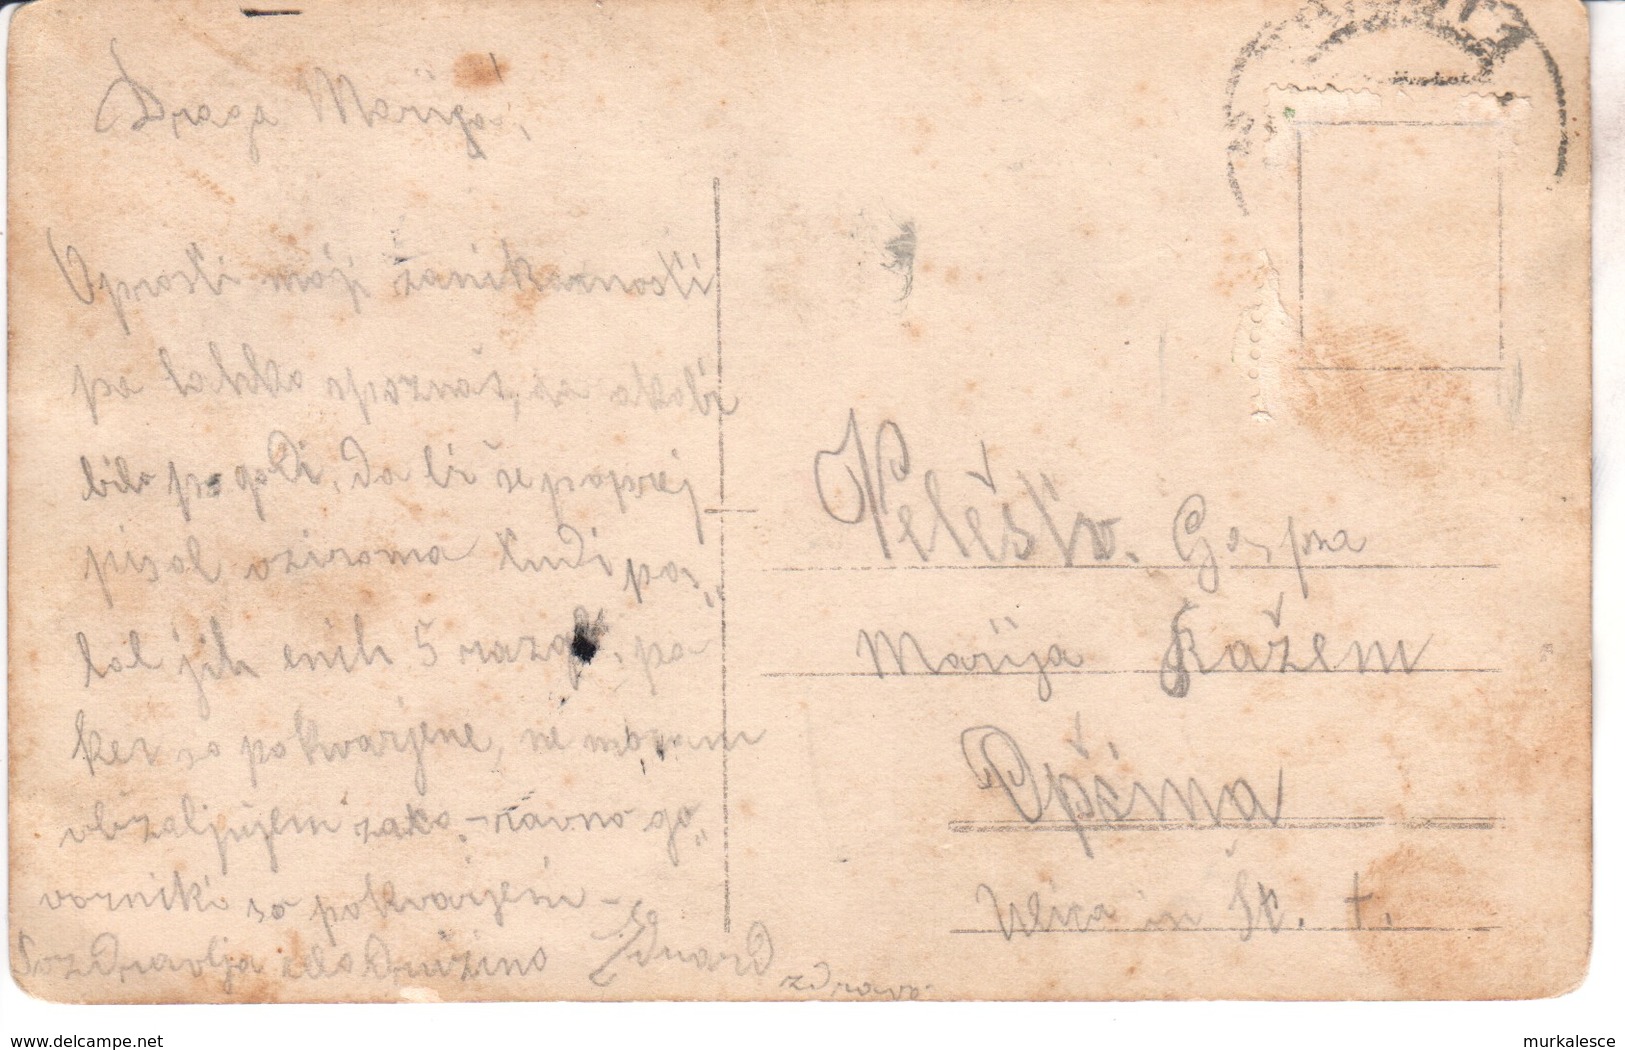 Draga Marija!
Oprosti moji zanikarnosti
pa lahko spoznaš, da
bilo po godi, da bi še poprej
pisal, oziroma tudi pos„
lal jih enih 5 pa
ker so pokvarjene, ne morem
obžaljujem tako - ravno go„
vorniki so pokvarjeni -
Pozdravlja celo družino Eduard
zdravo
Velešto. Gospa
Marija
Ulica in Št. †.
www.delcampe.net
murkalesce